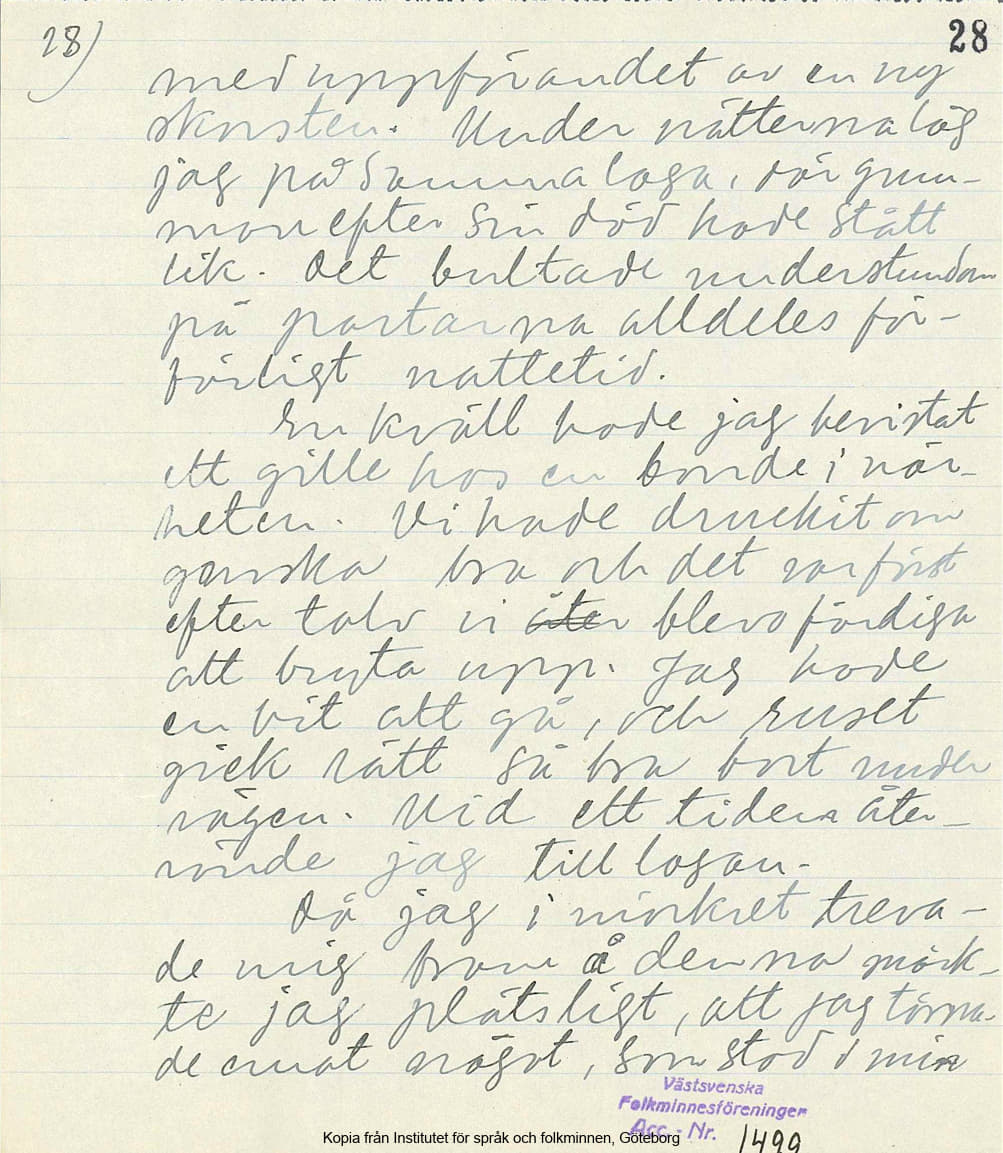 28)
28
med uppförandet av en ny
skorsten. Under nätterna låg
jag på samma loga, där gum-
man efter sin död hade stått
lik. Det bultade understundom
på portarna alldeles för-
färligt nattetid.
En kväll hade jag bevistat
ett gille hos en bonde i när-
heten. Vi hade druckit om
ganska bra och det var först
efter tolv vi åter blevo färdiga
att bryta upp. Jag hade
en bit att gå, och ruset
gick rätt så bra bort under
vägen. Vid ett tiden åter-
vände jag till logan.
Då jag i mörkret treva-
de mig fram å denna märk-
te jag plötsligt, att jag törna-
de emot något, som stod i min
Västsvenska
Folkminnesföreningen
Acc.-Nr. 1499
Kopia från Institutet för språk och folkminnen, Göteborg